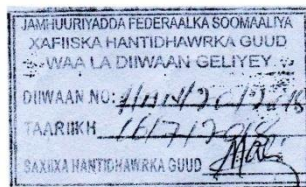 JAMHUURIYADDA FEDERAALKA SOOMAALIYA
XAFIISKA HANTIDHAWRKA GUUD
WAA LA DIIWAAN GELIYEY
DIIWAAN NO:
TAARIIKH 16/7/2018
SAXIIXA HANTIDHAWRKA GUUD